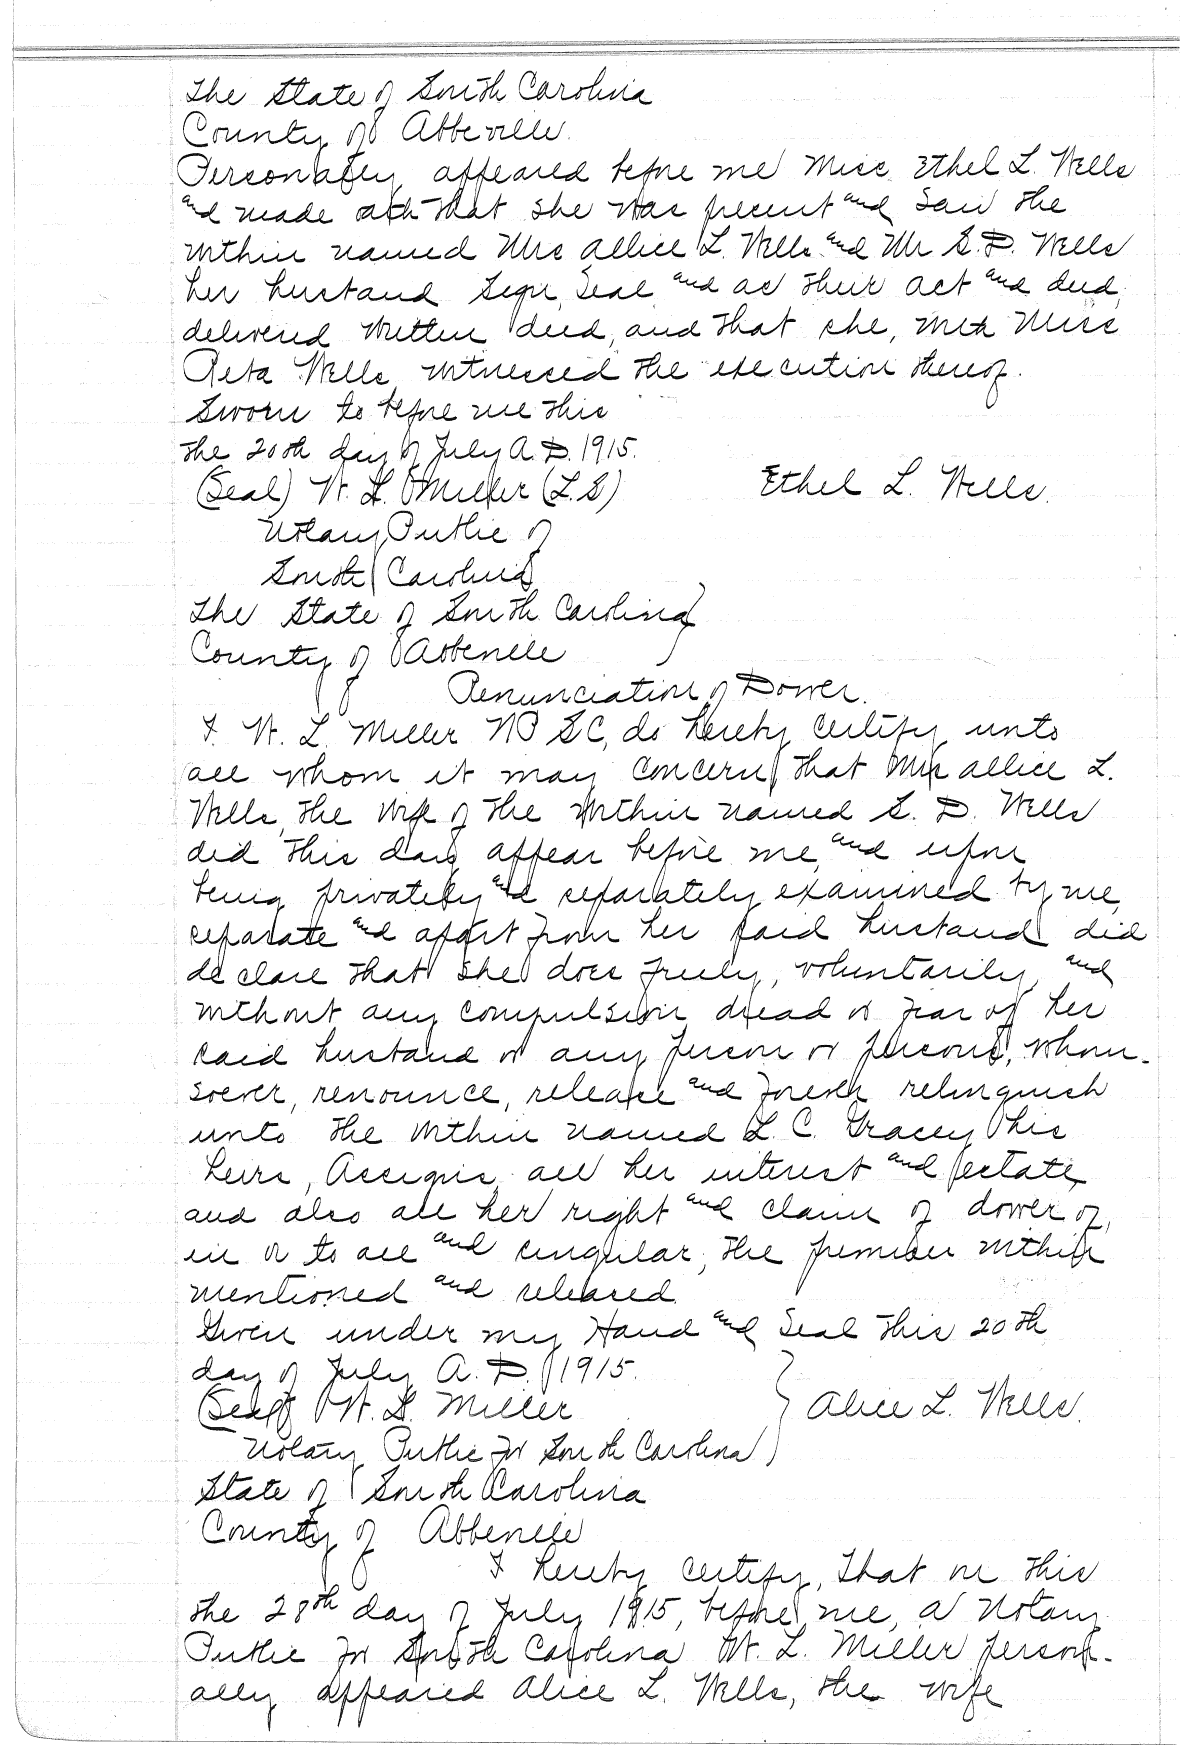 The State of South Carolina
County of Abbeville.
Personally appeared before me Miss Ethel L. Wells
and made oath that she was present and saw the
within named Mrs Allice L. Wells and Mr S. D. Wells
her husband sign, seal and as their act and deed,
delivered written deed, and that she, with Miss
Reta Wells witnessed the execution thereof.
Sworn to before me this
the 20th day of July A. D. 1915.
(Seal) W. L. Miller (L.S) Ethel L. Wells.
Notary Public of
South Carolina
The State of South Carolina }
County of Abbeville
Renunciation of Dower.
I. W. L. Miller NP SC, do hereby certify unto
all whom it may concern that Mrs Allice L.
Wells, the wife of the within named S. D. Wells
did this day appear before me, and upon
being privately and separately examined by me,
separate and apart from her said husband did
declare that she does freely, voluntarily, and
without any compulsion dread or fear of her
said husband or any person or persons, whom-
soever, renounce, release and forever relinquish
unto the within named L. C. Gracey his
heirs, Assigns all her interest and estate
and also all her right and claim of dower of,
in or to all and singular, the premises within
mentioned and released.
Given under my Hand and Seal this 20th
day of July A. D. 1915.
(Seal) W. L. Miller } Alice L. Wells.
Notary Public for South Carolina
State of South Carolina
County of Abbeville
I hereby certify, that on this
the 28th day of July 1915, before me, a Notary
Public for South Carolina W. L. Miller person-
ally appeared Alice L. Wells, the wife